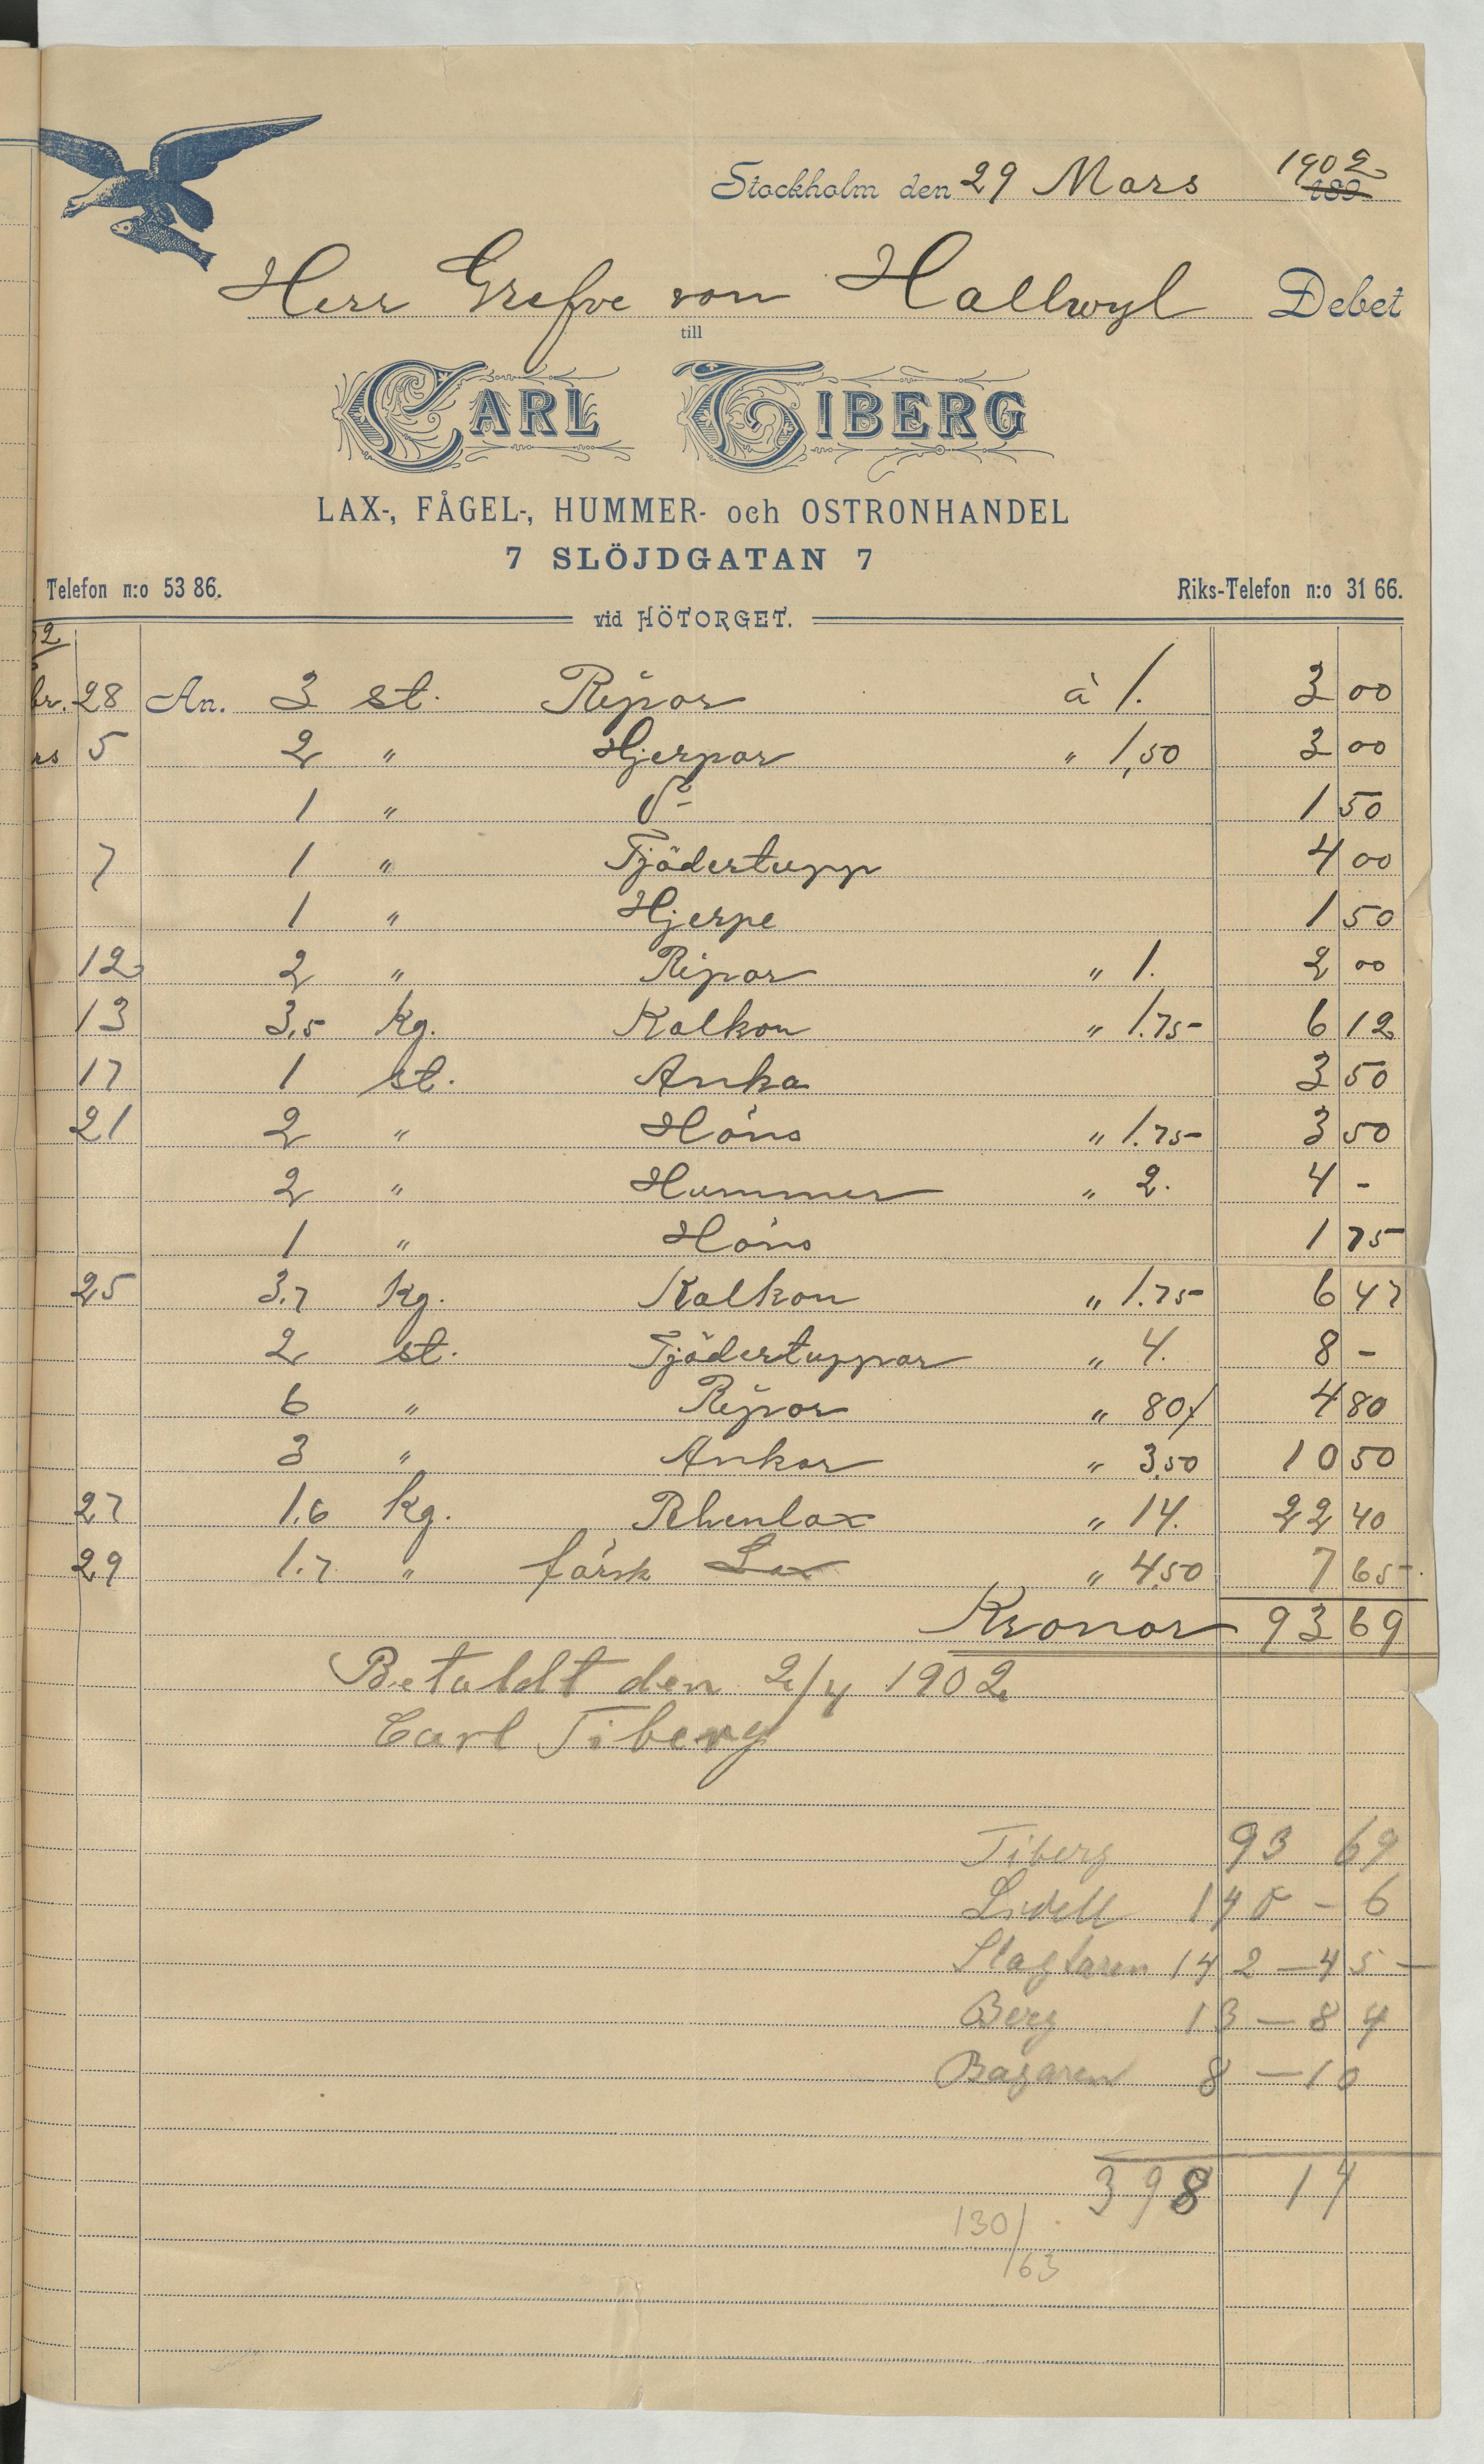 Stockholm den 29 Mars 1902
Herr Grefve von Hallwyl Debet
till
CARL TIBERG
LAX-, FÅGEL-, HUMMER- och OSTRONHANDEL
7 SLÖJDGATAN 7
Telefon n:o 53 86. Riks-Telefon n:o 31 66.
vid HÖTORGET.
br. 28 An. 3 st. Ripor à 1. 3 00
rs 5 2 " Hjerpar " 1,50 3 00
1 " do 1 50
7 1 " Tjädertupp 4 00
1 " Hjerpe 1 50
12 2 " Ripor " 1. 2 00
13 3,5 Kg. Kalkon " 1.75 6 12
17 1 st. Anka 3 50
21 2 " Höns " 1.75 3 50
2 " Hummer " 2. 4 -
1 " Höns 1 75
25 3.7 Kg. Kalkon " 1.75 6 47
2 st. Tjädertuppar " 4. 8 -
6 " Ripor " 80 4 80
3 " Ankor " 3,50 10 50
27 1.6 Kg. Rhenlax " 14. 22 40
29 1.7 " färsk Lax " 4,50 7 65
Kronor 93 69
Betaldt den 2/4 1902
Carl Tiberg
Tiberg 93 69
140 - 6
Slagtaren 142 — 45 —
Berg 13 — 84
Bagaren 8 — 10
398 14
130/63